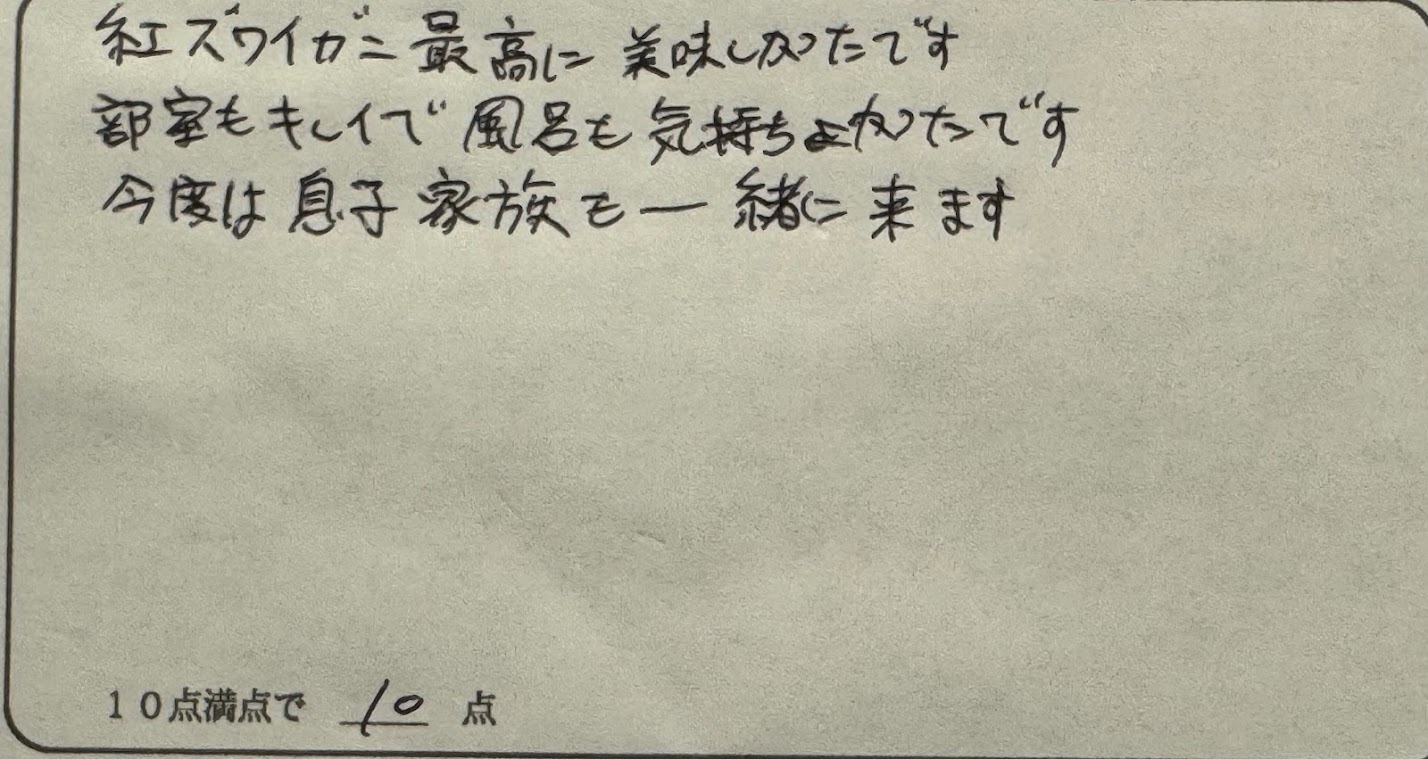 紅ズワイガニ最高に美味しかったです
部室もキレイで風呂も気持ちよかったです
今度は息子家族も一緒に来ます
10点満点で 10 点